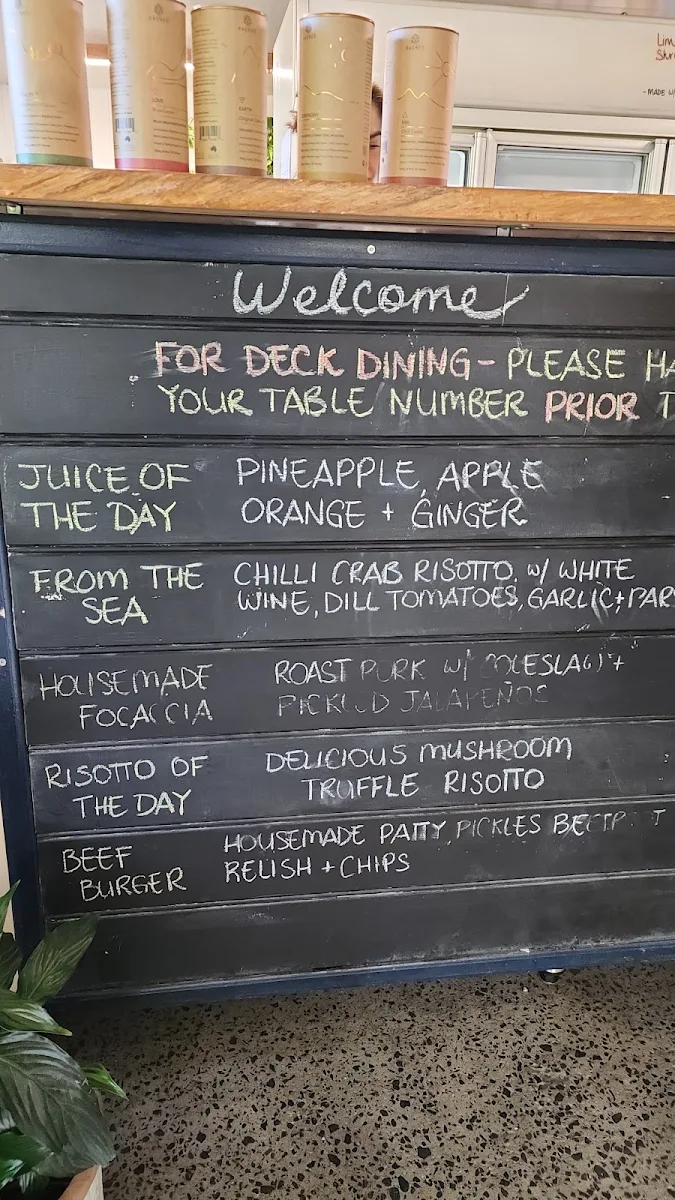 Welcome
FOR DECK DINING - PLEASE HA
YOUR TABLE NUMBER PRIOR T
JUICE OF
THE DAY
PINEAPPLE, APPLE
ORANGE + GINGER
FROM THE
SEA
CHILLI CRAB RISOTTO. W/ WHITE
WINE, DILL TOMATOES, GARLIC + PAR
HOUSEMADE
FOCACCIA
ROAST PORK W/ COLESLAW +
PICKLED JALAPEÑOS
RISOTTO OF
THE DAY
DELICIOUS MUSHROOM
TRUFFLE RISOTTO
BEEF
BURGER
HOUSEMADE PATTY, PICKLES
RELISH + CHIPS
- MADE W
EARTH
LOVE